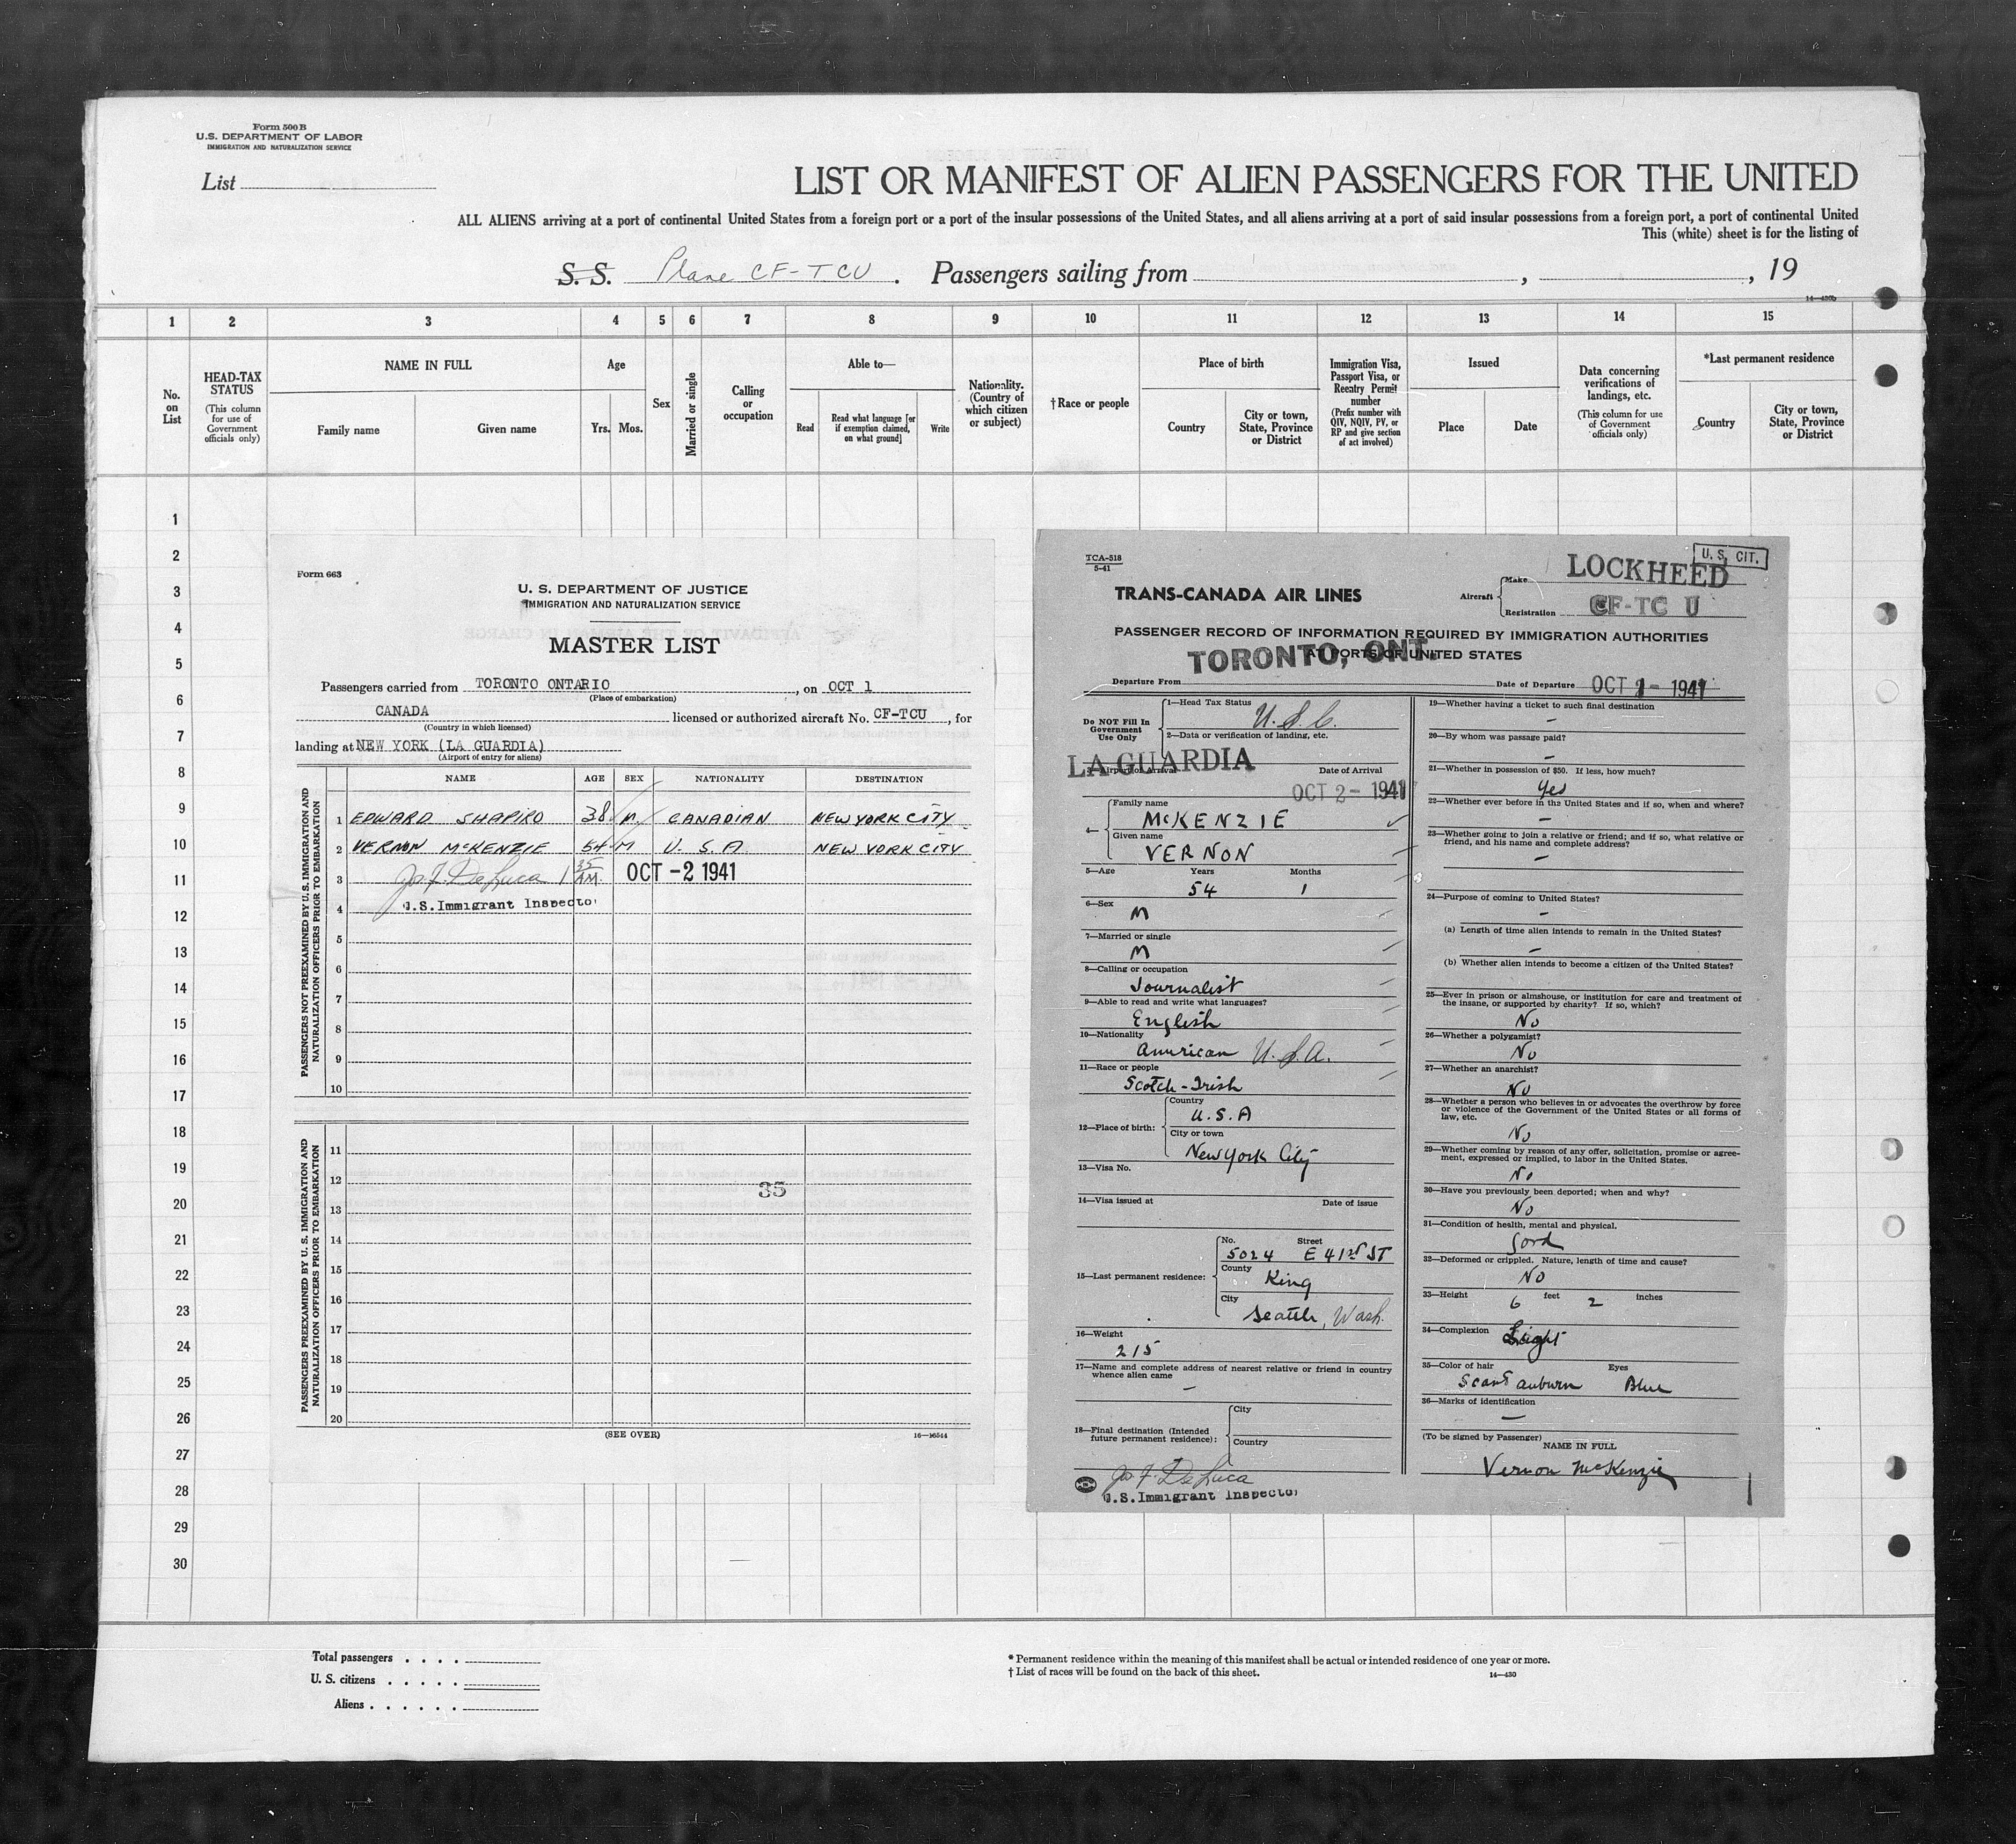 Form 500 B
U.S. DEPARTMENT OF LABOR
IMMIGRATION AND NATURALIZATION SERVICE
List
LIST OR MANIFEST OF ALIEN PASSENGERS FOR THE UNITED
ALL ALIENS arriving at a port of continental United States from a foreign port or a port of the insular possessions of the United States, and all aliens arriving at a port of said insular possessions from a foreign port, a port of continental United
This (white) sheet is for the listing of
S. S. Plane CF-TCU. Passengers sailing from , , 19
14—430b
1 2 3 4 5 6 7 8 9 10 11 12 13 14 15
No. on List
HEAD-TAX STATUS
(This column for use of Government officials only)
NAME IN FULL
Family name Given name
Age
Yrs. Mos.
Sex
Married or single
Calling or occupation
Able to—
Read
Read what language [or if exemption claimed, on what ground]
Write
Nationality. (Country of which citizen or subject)
†Race or people
Place of birth
Country
City or town, State, Province or District
Immigration Visa, Passport Visa, or Reentry Permit number
(Prefix number with QIV, NQIV, PV, or RP and give section of act involved)
Issued
Place Date
Data concerning verifications of landings, etc.
(This column for use of Government officials only)
*Last permanent residence
Country
City or town, State, Province or District
1
2
3
4
5
6
7
8
9
10
11
12
13
14
15
16
17
18
19
20
21
22
23
24
25
26
27
28
29
30
Form 663
U. S. DEPARTMENT OF JUSTICE
IMMIGRATION AND NATURALIZATION SERVICE
MASTER LIST
Passengers carried from TORONTO ONTARIO, on OCT 1
(Place of embarkation)
CANADA licensed or authorized aircraft No. CF-TCU, for
(Country in which licensed)
landing at NEW YORK (LA GUARDIA)
(Airport of entry for aliens)
NAME AGE SEX NATIONALITY DESTINATION
PASSENGERS NOT PREEXAMINED BY U. S. IMMIGRATION AND NATURALIZATION OFFICERS PRIOR TO EMBARKATION
1 EDWARD SHAPIRO 38 M. CANADIAN NEW YORK CITY
2 VERNON McKENZIE 54 M U. S. A. NEW YORK CITY
3 Jos. F. DeLuca 1 35 AM. OCT -2 1941
4 U.S. Immigrant Inspector
5
6
7
8
9
10
PASSENGERS PREEXAMINED BY U. S. IMMIGRATION AND NATURALIZATION OFFICERS PRIOR TO EMBARKATION
11
12
35
13
14
15
16
17
18
19
20
(SEE OVER)
16—16544
TCA-518
5-41
U. S. CIT.
TRANS-CANADA AIR LINES
Aircraft
Make LOCKHEED
Registration CF-TC U
PASSENGER RECORD OF INFORMATION REQUIRED BY IMMIGRATION AUTHORITIES
AT PORTS OF UNITED STATES
Departure From TORONTO, ONT.
Date of Departure OCT 1- 1941
Do NOT Fill In Government Use Only
1—Head Tax Status U. S. C.
2—Data or verification of landing, etc.
3—Airport of Arrival LA GUARDIA
Date of Arrival OCT 2- 1941
4—
Family name McKENZIE
Given name VERNON
5—Age Years 54 Months 1
6—Sex M
7—Married or single M
8—Calling or occupation Journalist
9—Able to read and write what languages? English
10—Nationality American U. S. A.
11—Race or people Scotch-Irish
12—Place of birth:
Country U.S.A
City or town New York City
13—Visa No.
14—Visa issued at Date of issue
15—Last permanent residence:
No. 5024 Street E 41st ST
County King
City Seattle, Wash.
16—Weight 215
17—Name and complete address of nearest relative or friend in country whence alien came
—
18—Final destination (Intended future permanent residence):
City
Country
Jos. F. DeLuca
U.S. Immigrant Inspector
19—Whether having a ticket to such final destination
—
20—By whom was passage paid?
—
21—Whether in possession of $50. If less, how much?
Yes
22—Whether ever before in the United States and if so, when and where?
—
23—Whether going to join a relative or friend; and if so, what relative or friend, and his name and complete address?
—
24—Purpose of coming to United States?
—
(a) Length of time alien intends to remain in the United States?
—
(b) Whether alien intends to become a citizen of the United States?
25—Ever in prison or almshouse, or institution for care and treatment of the insane, or supported by charity? If so, which?
No
26—Whether a polygamist?
No
27—Whether an anarchist?
No
28—Whether a person who believes in or advocates the overthrow by force or violence of the Government of the United States or all forms of law, etc.
No
29—Whether coming by reason of any offer, solicitation, promise or agreement, expressed or implied, to labor in the United States.
No
30—Have you previously been deported; when and why?
No
31—Condition of health, mental and physical.
Good
32—Deformed or crippled. Nature, length of time and cause?
No
33—Height 6 feet 2 inches
34—Complexion Light
35—Color of hair Scant auburn Eyes Blue
36—Marks of identification
—
(To be signed by Passenger)
NAME IN FULL
Vernon McKenzie
Total passengers . . . .
U. S. citizens . . . . .
Aliens . . . . . .
* Permanent residence within the meaning of this manifest shall be actual or intended residence of one year or more.
† List of races will be found on the back of this sheet.
14—430